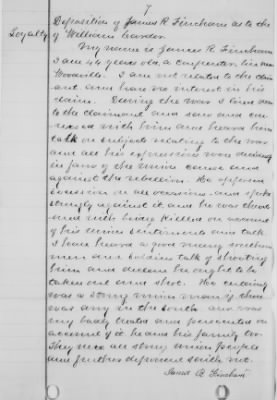 7
Deposition of James R. Fincham as to the
Loyalty of William
My name is James R Fincham
I am 46 years old, a carpenter
Woodville. I am not related to the claim
ant and have no interest in his
claim. During the war I lived
to the claimant and saw and con
versed with him and heard him
talk on subjects relating to the war
and all his expressions were
in favor of the union cause and
against the rebellion. He opposed
secession on all occasions and spoke
strongly against it and he was threat
ened with being killed on account
of his union sentiments and talk
I have heard a good many southern
men and soldiers talk of shooting
him and declare he ought to be
taken out and shot. He certainly
was a strong union man if there
was any in the south and was
very badly treated and persecuted on
account of it he and his family too.
They were all strong union people
and further deponent saith not.
James R. Fincham